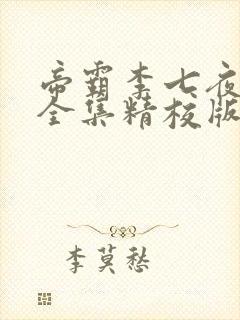 帝霸李七夜
全集精校版
李莫愁